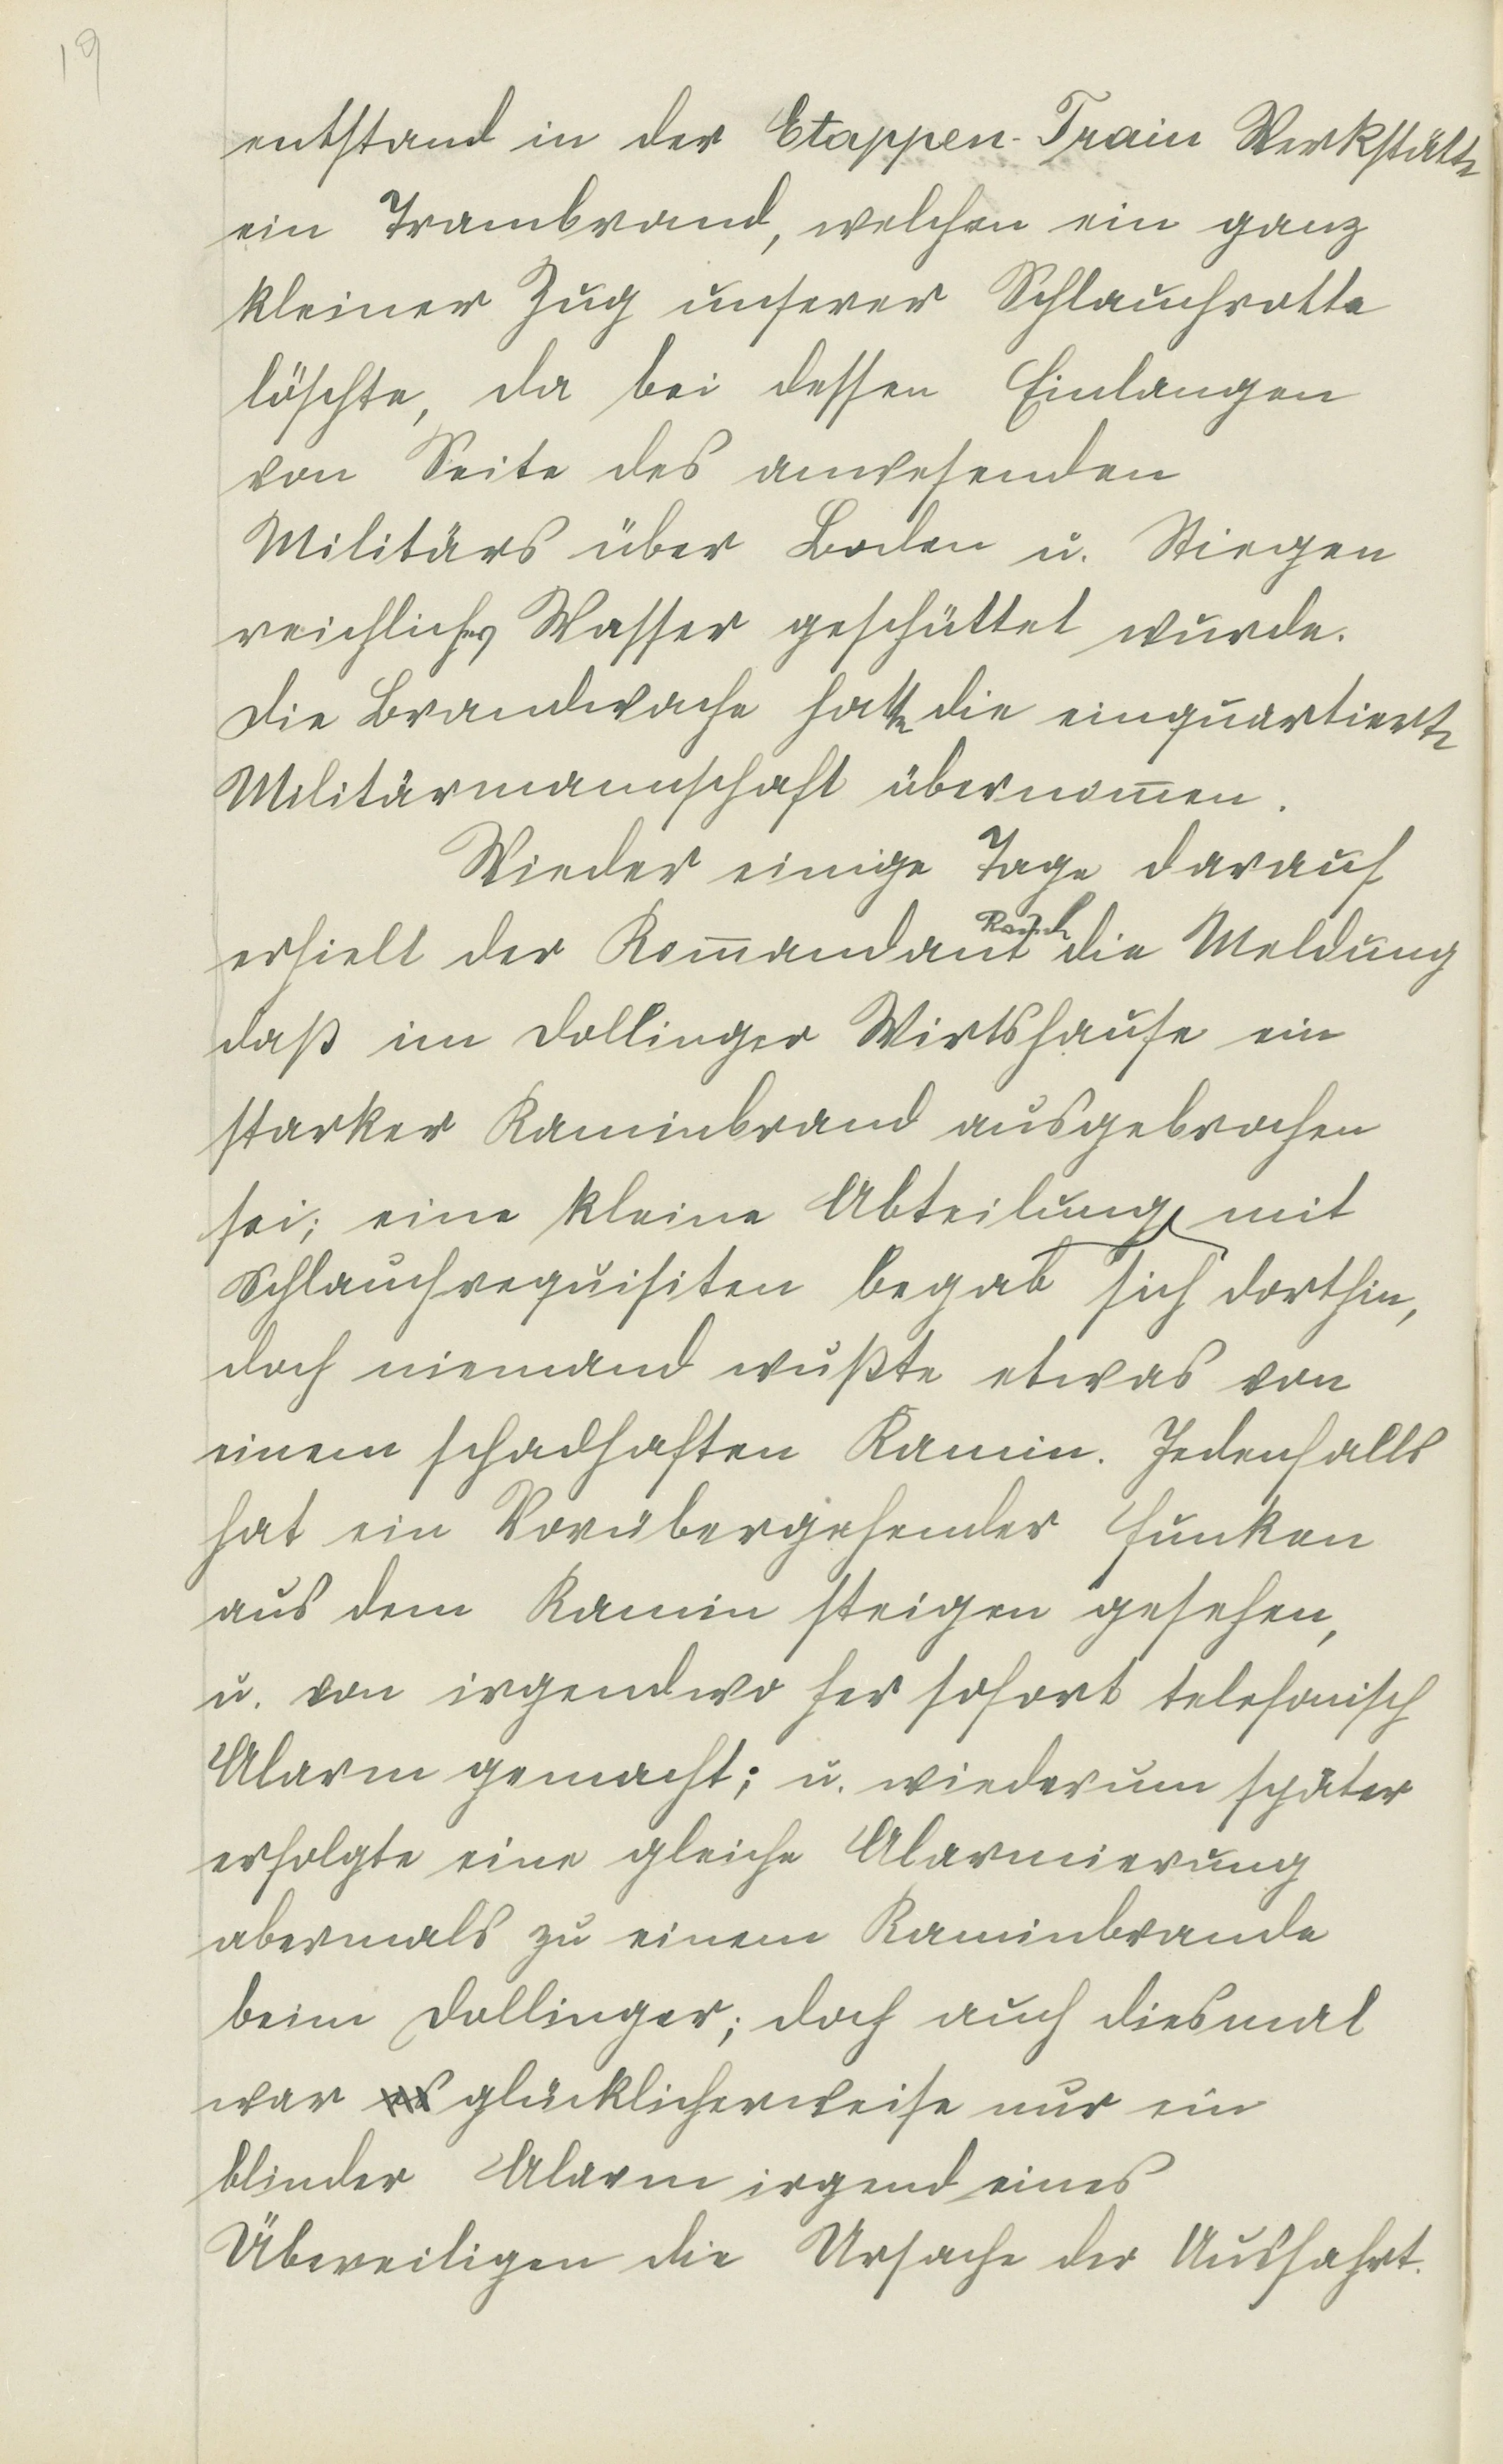 19
entstand in der Etappen-Train Werkstätte
ein Trambrand, welchen ein ganz
kleiner Zug unserer Schlauchrotte
löschte, da bei dessen Einlangen
von Seite des anwesenden
Militärs über Boden u. Stiegen
reichliches Wasser geschüttet wurde.
Die Brandwache hatte die einquartierte
Militärmannschaft übernom̅en.
Wieder einige Tage darauf
erhielt der Kom̅andant die Meldung
daß im Dollinger Wirtshause ein
starker Kaminbrand ausgebrochen
sei; eine kleine Abteilung mit
Schlauchrequisiten begab sich dorthin,
doch niemand wußte etwas von
einem schadhaften Kamin. Jedenfalls
hat ein Vorübergehender Funken
aus dem Kamin steigen gesehen,
u. von irgendwo her sofort telefonisch
Alarm gemacht; u. wiederum später
erfolgte eine gleiche Alarmierung
abermals zu einem Kaminbrande
beim Dollinger; doch auch diesmal
war glücklicherweise nur ein
blinder Alarm irgend eines
Übereiligen die Ursache der Ausfahrt.